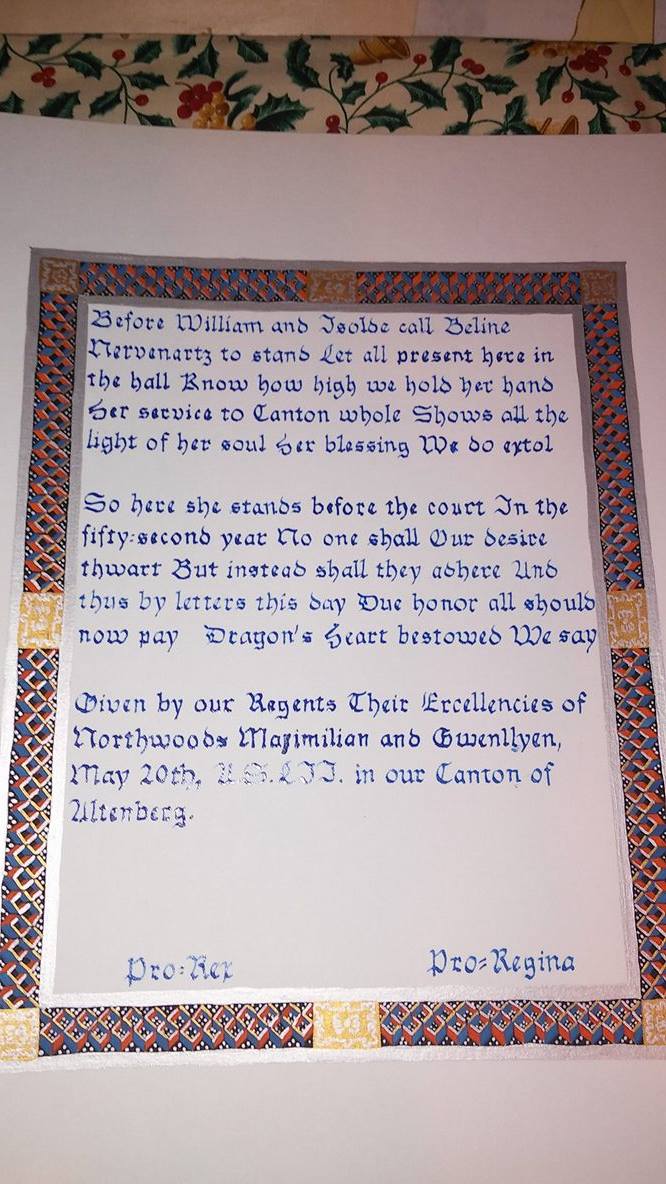 Before William and Isolde call Beline
Nervenartz to stand Let all present here in
the hall Know how high we hold her hand
Her service to Canton whole Shows all the
light of her soul Her blessing We do extol
So here she stands before the court In the
fifty-second year No one shall Our desire
thwart But instead shall they adhere And
thus by letters this day Due honor all should
now pay Dragon's Heart bestowed We say
Given by our Regents Their Excellencies of
Northwoods Maximilian and Gwenllyen,
May 20th, A.S.LII. in our Canton of
Altenberg.
Pro-Rex Pro-Regina